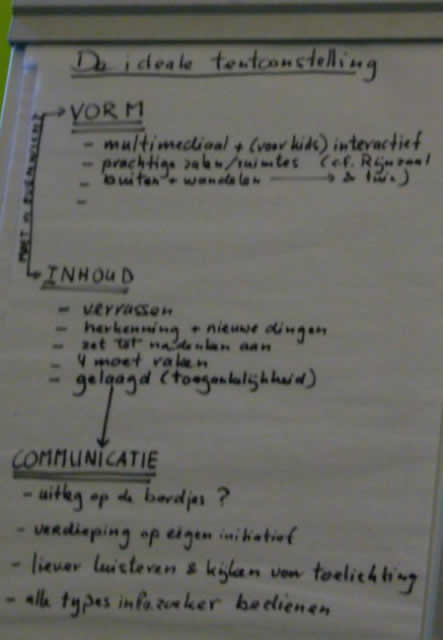 De ideale tentoonstelling
VORM
- multimediaal + (voor kids) interactief
- prachtige zalen/ruimtes (c.f. Rijnzaal
- buiten + wandelen → & tuin)
-
MOET IN EVENWICHT
INHOUD
- verrassen
- herkenning + nieuwe dingen
- zet tot nadenken aan
- 't moet raken
- gelaagd (toegankelijkheid)
COMMUNICATIE
- uitleg op de bordjes ?
- verdieping op eigen initiatief
- liever luisteren & kijken voor toelichting
- alle types infozoeker bedienen